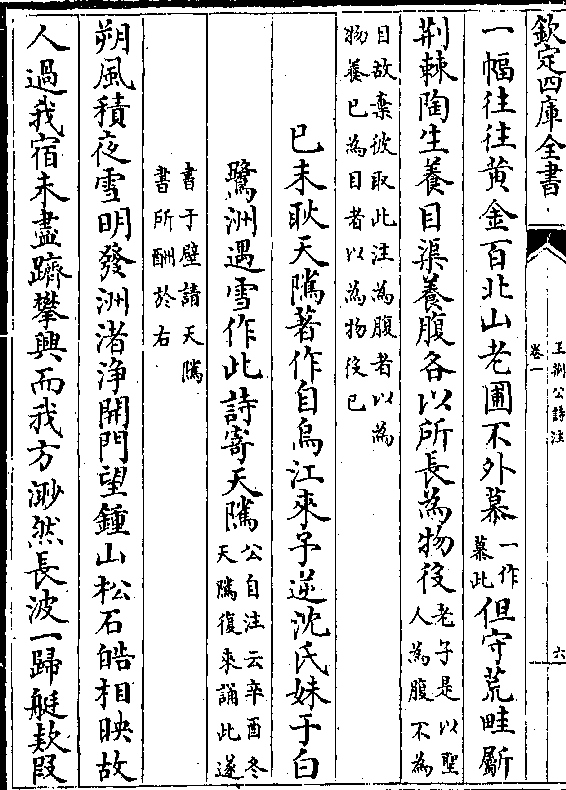 欽定四庫全書
王荊公詩注
卷一
六
一幅往往黄金百北山老圃不外慕
一作
慕此
但守荒畦斸
荆棘陶生養目渠養腹各以所長為物役
老子是以聖
人為腹不為
目故棄彼取此注為腹者以為
物養已為目者以為物役已
已未耿天隲著作自烏江來予逆沈氏妹于白
鷺洲遇雪作此詩寄天隲
公自注云辛酉冬
天隲復來誦此遂
書于壁請天隲
書所酬於右
朔風積夜雪明發洲渚浄開門望鍾山松石皓相映故
人過我宿未盡躋攀興而我方渺然長波一歸艇款段